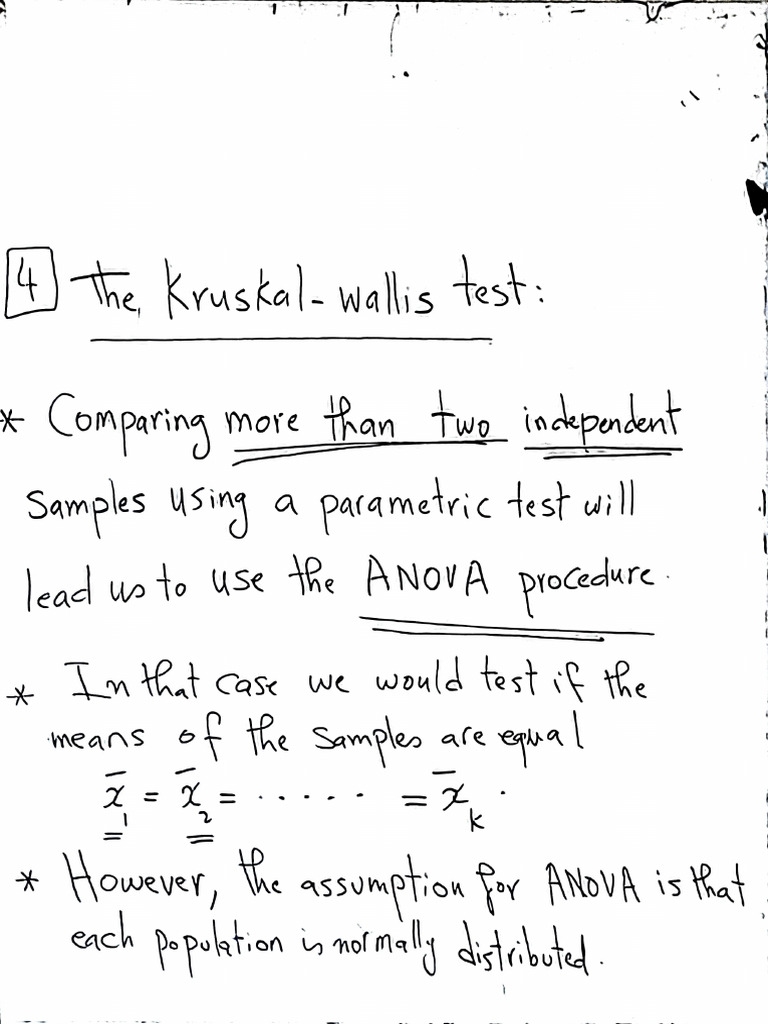 4 The Kruskal-wallis test:
* Comparing more than two independent
Samples using a parametric test will
lead us to use the ANOVA procedure.
* In that case we would test if the
means of the samples are equal
x̄₁ = x̄₂ = ...... = x̄ₖ.
* However, the assumption for ANOVA is that
each population is normally distributed.